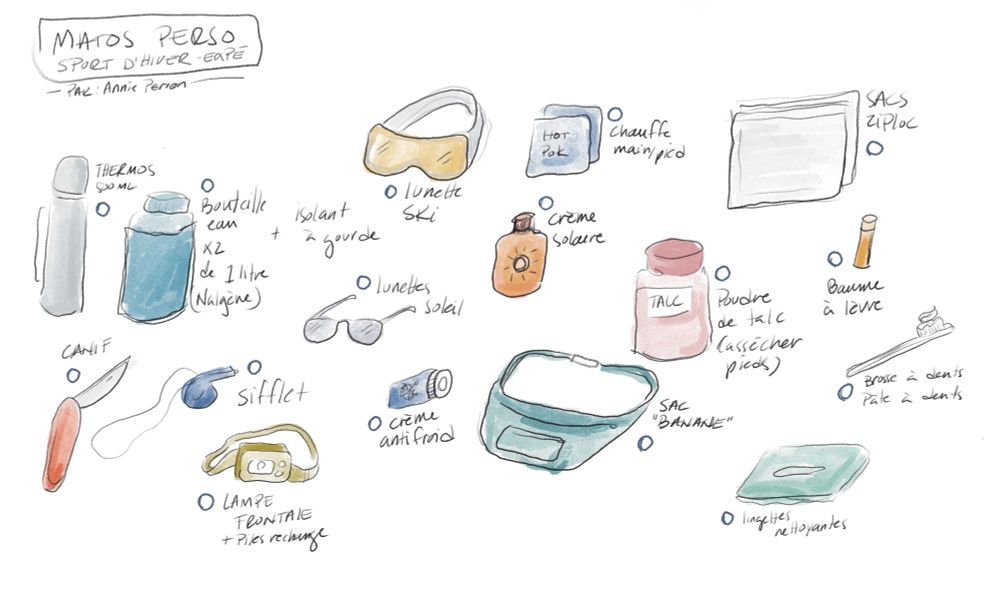 MATOS PERSO
SPORT D'HIVER - EAPÉ
PAR : Annie Perron
THERMOS
500 ML
Bouteille
eau
x2
de 1 litre
(Nalgène)
+ isolant
à gourde
lunette
SKi
HOT
POK
Chauffe
main/pied
SACS
ZIPLOC
crème
solaire
lunettes
soleil
TALC
Poudre
de talc
(assécher
pieds)
Baume
à lèvre
Brosse à dents
Pâte à dents
CANIF
Sifflet
crème
antifroid
SAC
"BANANE"
LAMPE
FRONTALE
+ Piles rechange
lingettes
nettoyantes